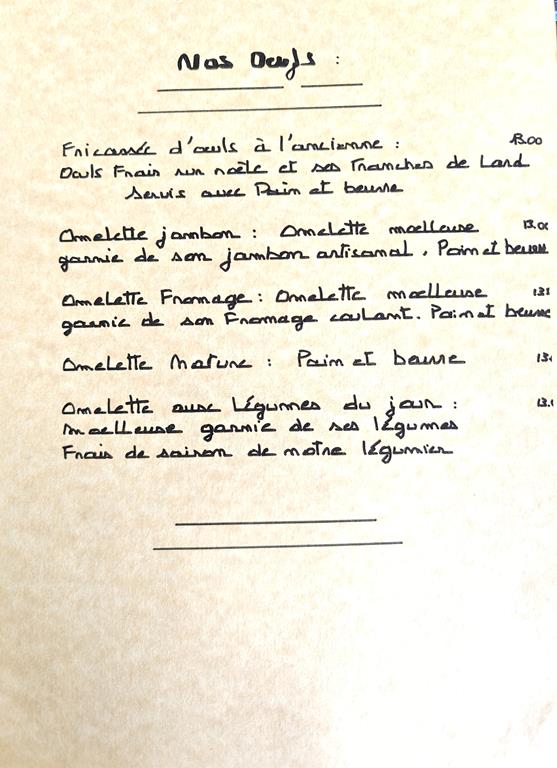 Nos Oeufs :
Fricassée d'oeufs à l'ancienne : 13.00
Oeufs Frais sur poêle et ses Tranches de Lard
Servis avec Pain et beurre
Omelette jambon : Omelette moelleuse 13.00
garnie de son jambon artisanal. Pain et beurre
Omelette Fromage : Omelette moelleuse 13
garnie de son Fromage coulant. Pain et beurre
Omelette Nature : Pain et beurre 13.
Omelette aux Légumes du jour : 13.
moelleuse garnie de ses légumes
Frais de saison de notre légumier